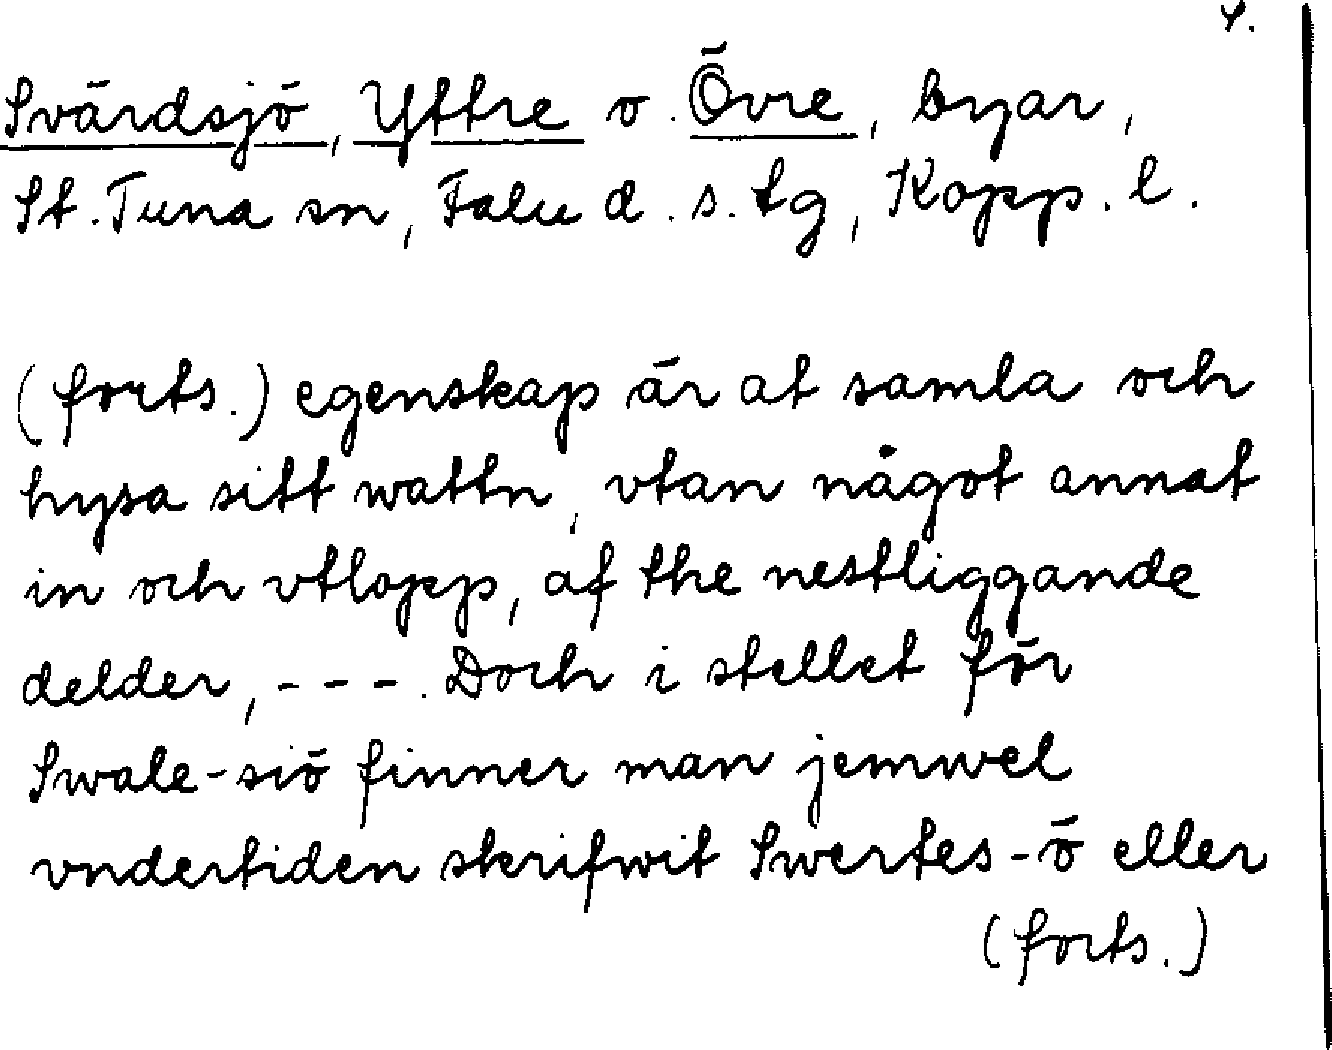 4.
Svärdsjö, Yttre o. Övre, byar,
St. Tuna sn, Falu d. s. tg, Kopp. l.
(forts.) egenskap är at samla och
hysa sitt wattn, vtan något annat
in och vtlopp, af the nestliggande
delder, - - -. Doch i stellet för
Swale-siö finner man jemwel
vndertiden skrifwit Swertes-ö eller
(forts.)